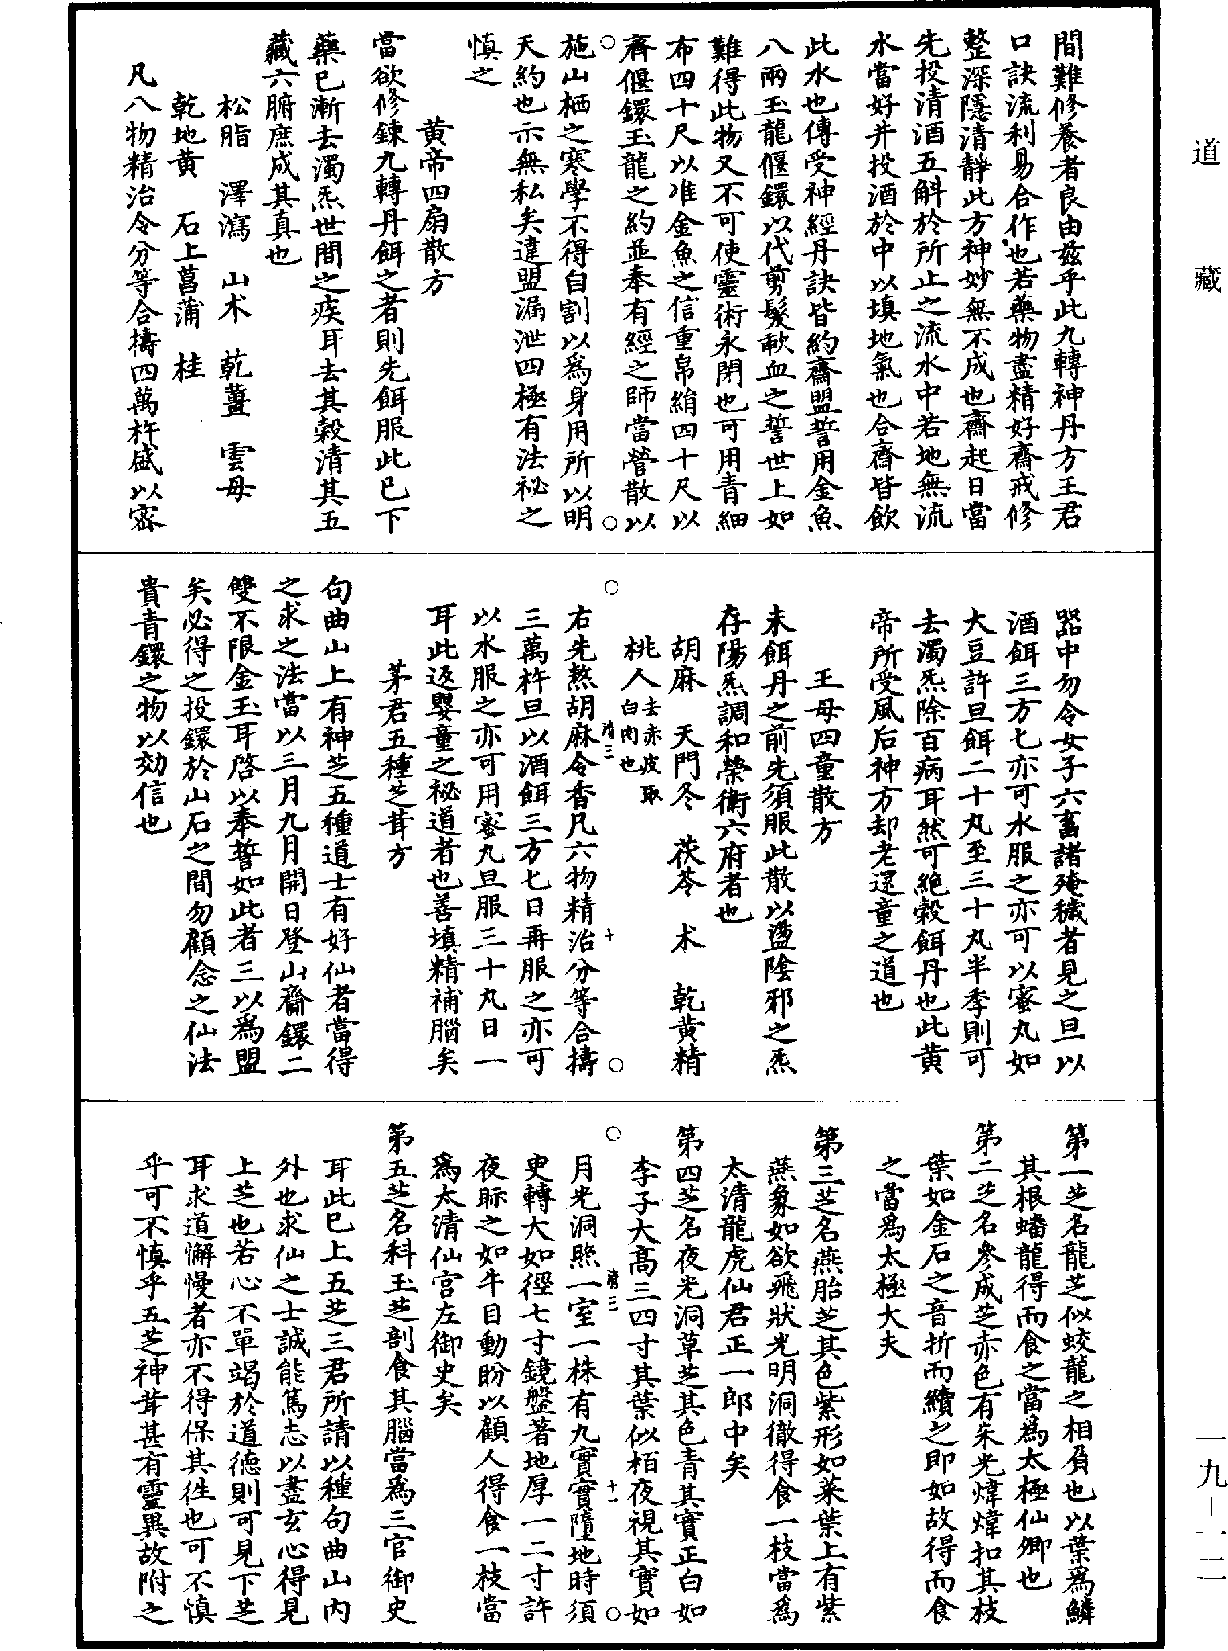 道藏
間難修養者良由茲乎此九轉神丹方王君
口訣流利易合作也若藥物盡精好齋戒修
整深隱清靜此方神妙無不成也齋起日當
先投清酒五斛於所止之流水中若地無流
水當好并投酒於中以填地氣也合齋皆飲
此水也傳受神經丹訣皆約齋盟誓用金魚
八兩玉龍偃鐶以代剪髮歃血之誓世上如
難得此物又不可使靈術永閉也可用青細
布四十尺以准金魚之信重帛絹四十尺以
齊偃鐶玉龍之約並奉有經之師當營散以
施山栖之寒學不得自割以為身用所以明
天約也示無私矣違盟漏泄四極有法祕之
慎之
黃帝四扇散方
當欲修鍊九轉丹餌之者則先餌服此已下
藥已漸去濁炁世間之疾耳去其穀清其五
藏六腑庶成其真也
松脂 澤瀉 山朮 乾薑 雲母
乾地黃 石上菖蒲 桂
凡八物精治令分等合擣四萬杵盛以密
器中勿令女子六畜諸殗穢者見之旦以
酒餌三方匕亦可水服之亦可以蜜丸如
大豆許旦餌二十丸至三十丸半季則可
去濁炁除百病耳然可絕穀餌丹也此黃
帝所受風后神方却老還童之道也
王母四童散方
未餌丹之前先須服此散以盪陰邪之炁
存陽炁調和榮衛六府者也
胡麻 天門冬 茯苓 朮 乾黃精
桃人去赤皮取白肉也
清三 十
右先熬胡麻令香凡六物精治分等合擣
三萬杵旦以酒餌三方匕日再服之亦可
以水服之亦可用蜜丸旦服三十丸日一
耳此返嬰童之祕道者也善填精補腦矣
茅君五種芝茸方
句曲山上有神芝五種道士有好仙者當得
之求之法當以三月九月開日登山齎鐶二
雙不限金玉耳啓以奉誓如此者三以為盟
矣必得之投鐶於山石之間勿顧念之仙法
貴青鐶之物以効信也
第一芝名龍芝似蛟龍之相負也以葉為鱗
其根蟠龍得而食之當為太極仙卿也
第二芝名參成芝赤色有朱光煒煒扣其枝
葉如金石之音折而續之即如故得而食
之當為太極大夫
第三芝名燕胎芝其色紫形如葵葉上有紫
燕象如欲飛狀光明洞徹得食一枝當為
太清龍虎仙君正一郎中矣
第四芝名夜光洞草芝其色青其實正白如
李子大高三四寸其葉似栢夜視其實如
清三 十一
月光洞照一室一株有九實實墮地時須
臾轉大如徑七寸鏡盤著地厚一二寸許
夜眎之如牛目動盼以顧人得食一枝當
為太清仙宮左御史矣
第五芝名科玉芝剖食其腦當為三官御史
耳此已上五芝三君所請以種句曲山內
外也求仙之士誠能篤志以盡玄心得見
上芝也若心不單竭於道德則可見下芝
耳求道懈慢者亦不得保其徃也可不慎
乎可不慎乎五芝神茸甚有靈異故附之
一九－一二